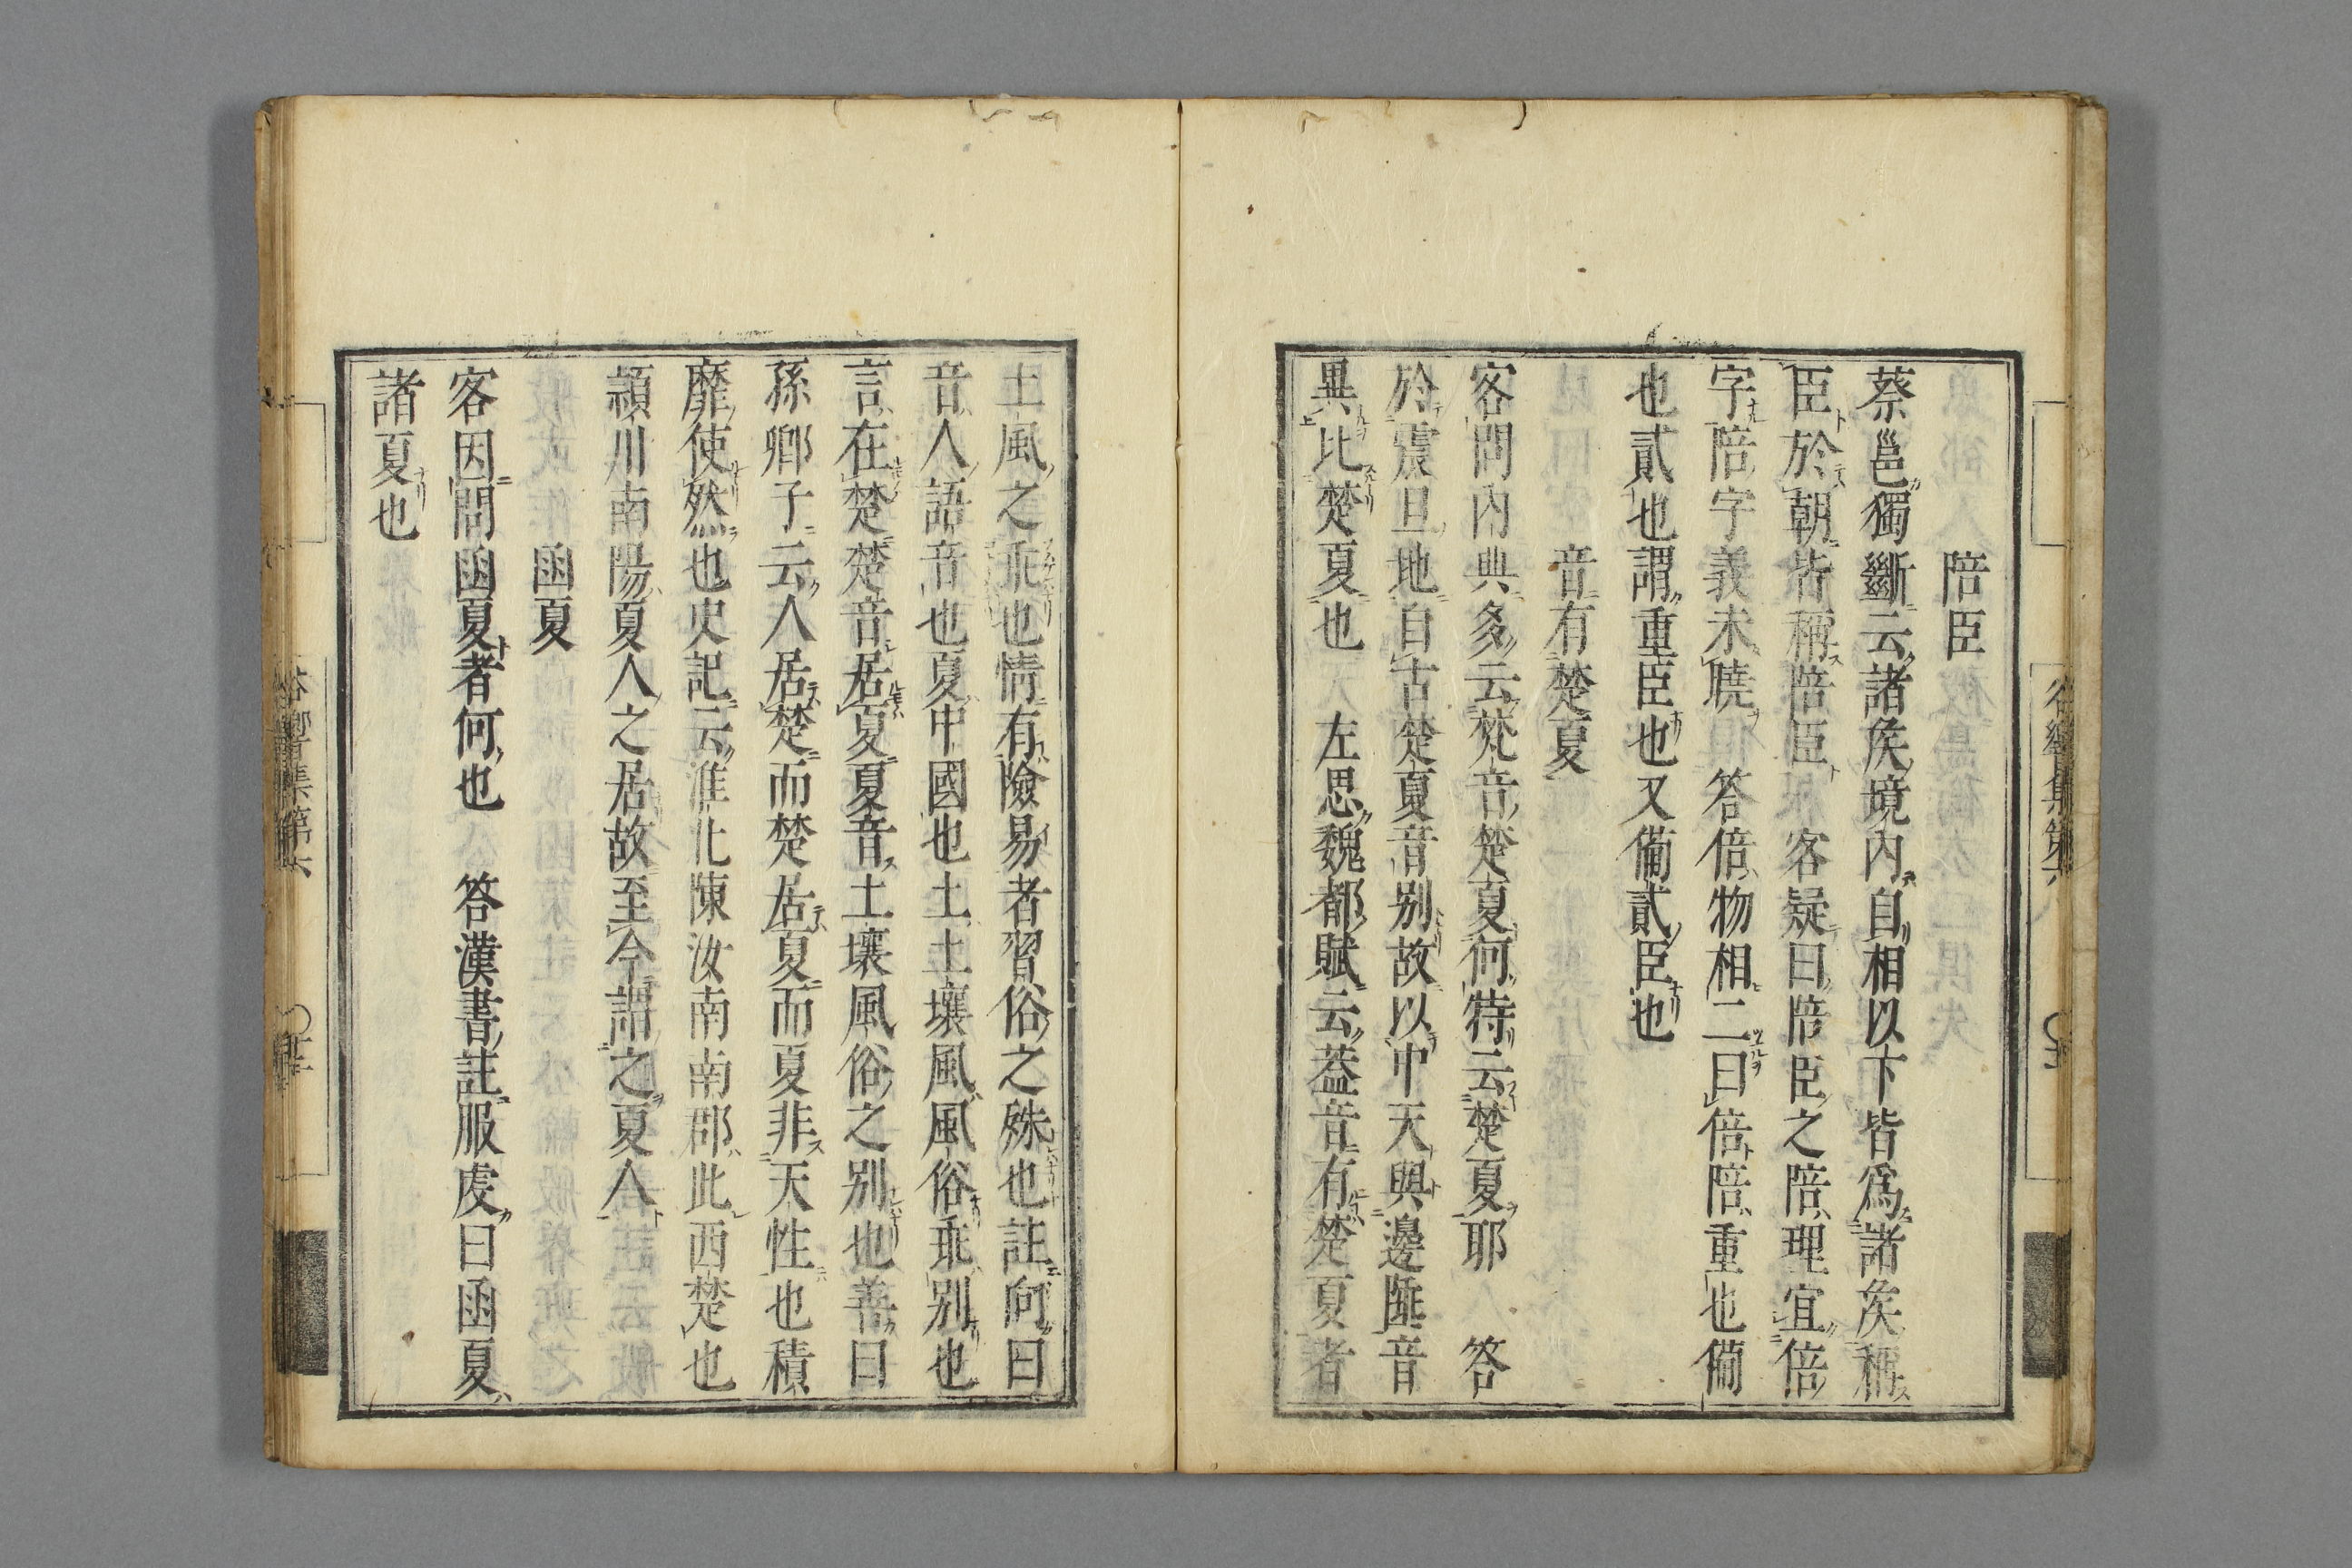 陪臣
蔡邕獨斷云諸矦境內自相以下皆爲諸矦稱
臣於朝皆稱陪臣　客疑曰陪臣之陪理宜倍
字陪字義未曉　答倍物相二曰倍陪重也備
也貳也謂重臣也又備貳臣也
音有楚夏
客問內典多云梵音楚夏何特云楚夏耶　答
於震旦地自古楚夏音別故以中天與邊陲音
異比楚夏也　左思魏都賦云葢音有楚夏者
土風之乖也情有險易者習俗之殊也註向曰
音人語音也夏中國也土土壤風風俗乖別也
言在楚楚音居夏夏音土壤風俗之別也善曰
孫卿子云人居楚而楚居夏而夏非天性也積
靡使然也史記云淮北陳汝南南郡此西楚也
頴川南陽夏人之居故至今謂之夏人
函夏
客因問函夏者何也　答漢書註服虔曰函夏
諸夏也
谷響集第六